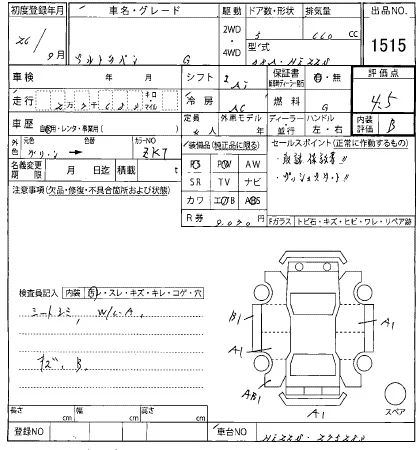 初度登録年月 車名・グレード 駆動 ドア数・形状 排気量 出品NO.
26/9月 G 2WD・4WD 5 660 cc 1515
型式
車検 年 月 シフト 保証書 新車時ディーラー発行 有・無 評価点
走行 キロ・マイル 冷房 AC 燃料 G 4.5
車歴 自家用・レンタ・事業用( ) 定員 4人 外車モデル 年 ディーラー・並行 ハンドル 左・右 内装評価 B
外色 元色 グリーン → 色替 カラーNO ZK7
装備品(純正品に限る) セールスポイント(正常に作動するもの)
名義変更期限 月 日迄 積載 t
PS PW AW ・取説 保証書!!
SR TV ナビ ・プッシュスタート!!
カワ エアB ABS
R券 Fガラス トビ石・キズ・ヒビ・ワレ・リペア跡
注意事項(欠品・修復・不具合箇所および状態)
検査員記入 内装 汚レ・スレ・キズ・キレ・コゲ・穴
シートシミ, W/L・A,
キズ, B,
B1
A1
A1
AB1
A1
スペア
長さ cm 幅 cm 高さ cm
登録NO 車台NO